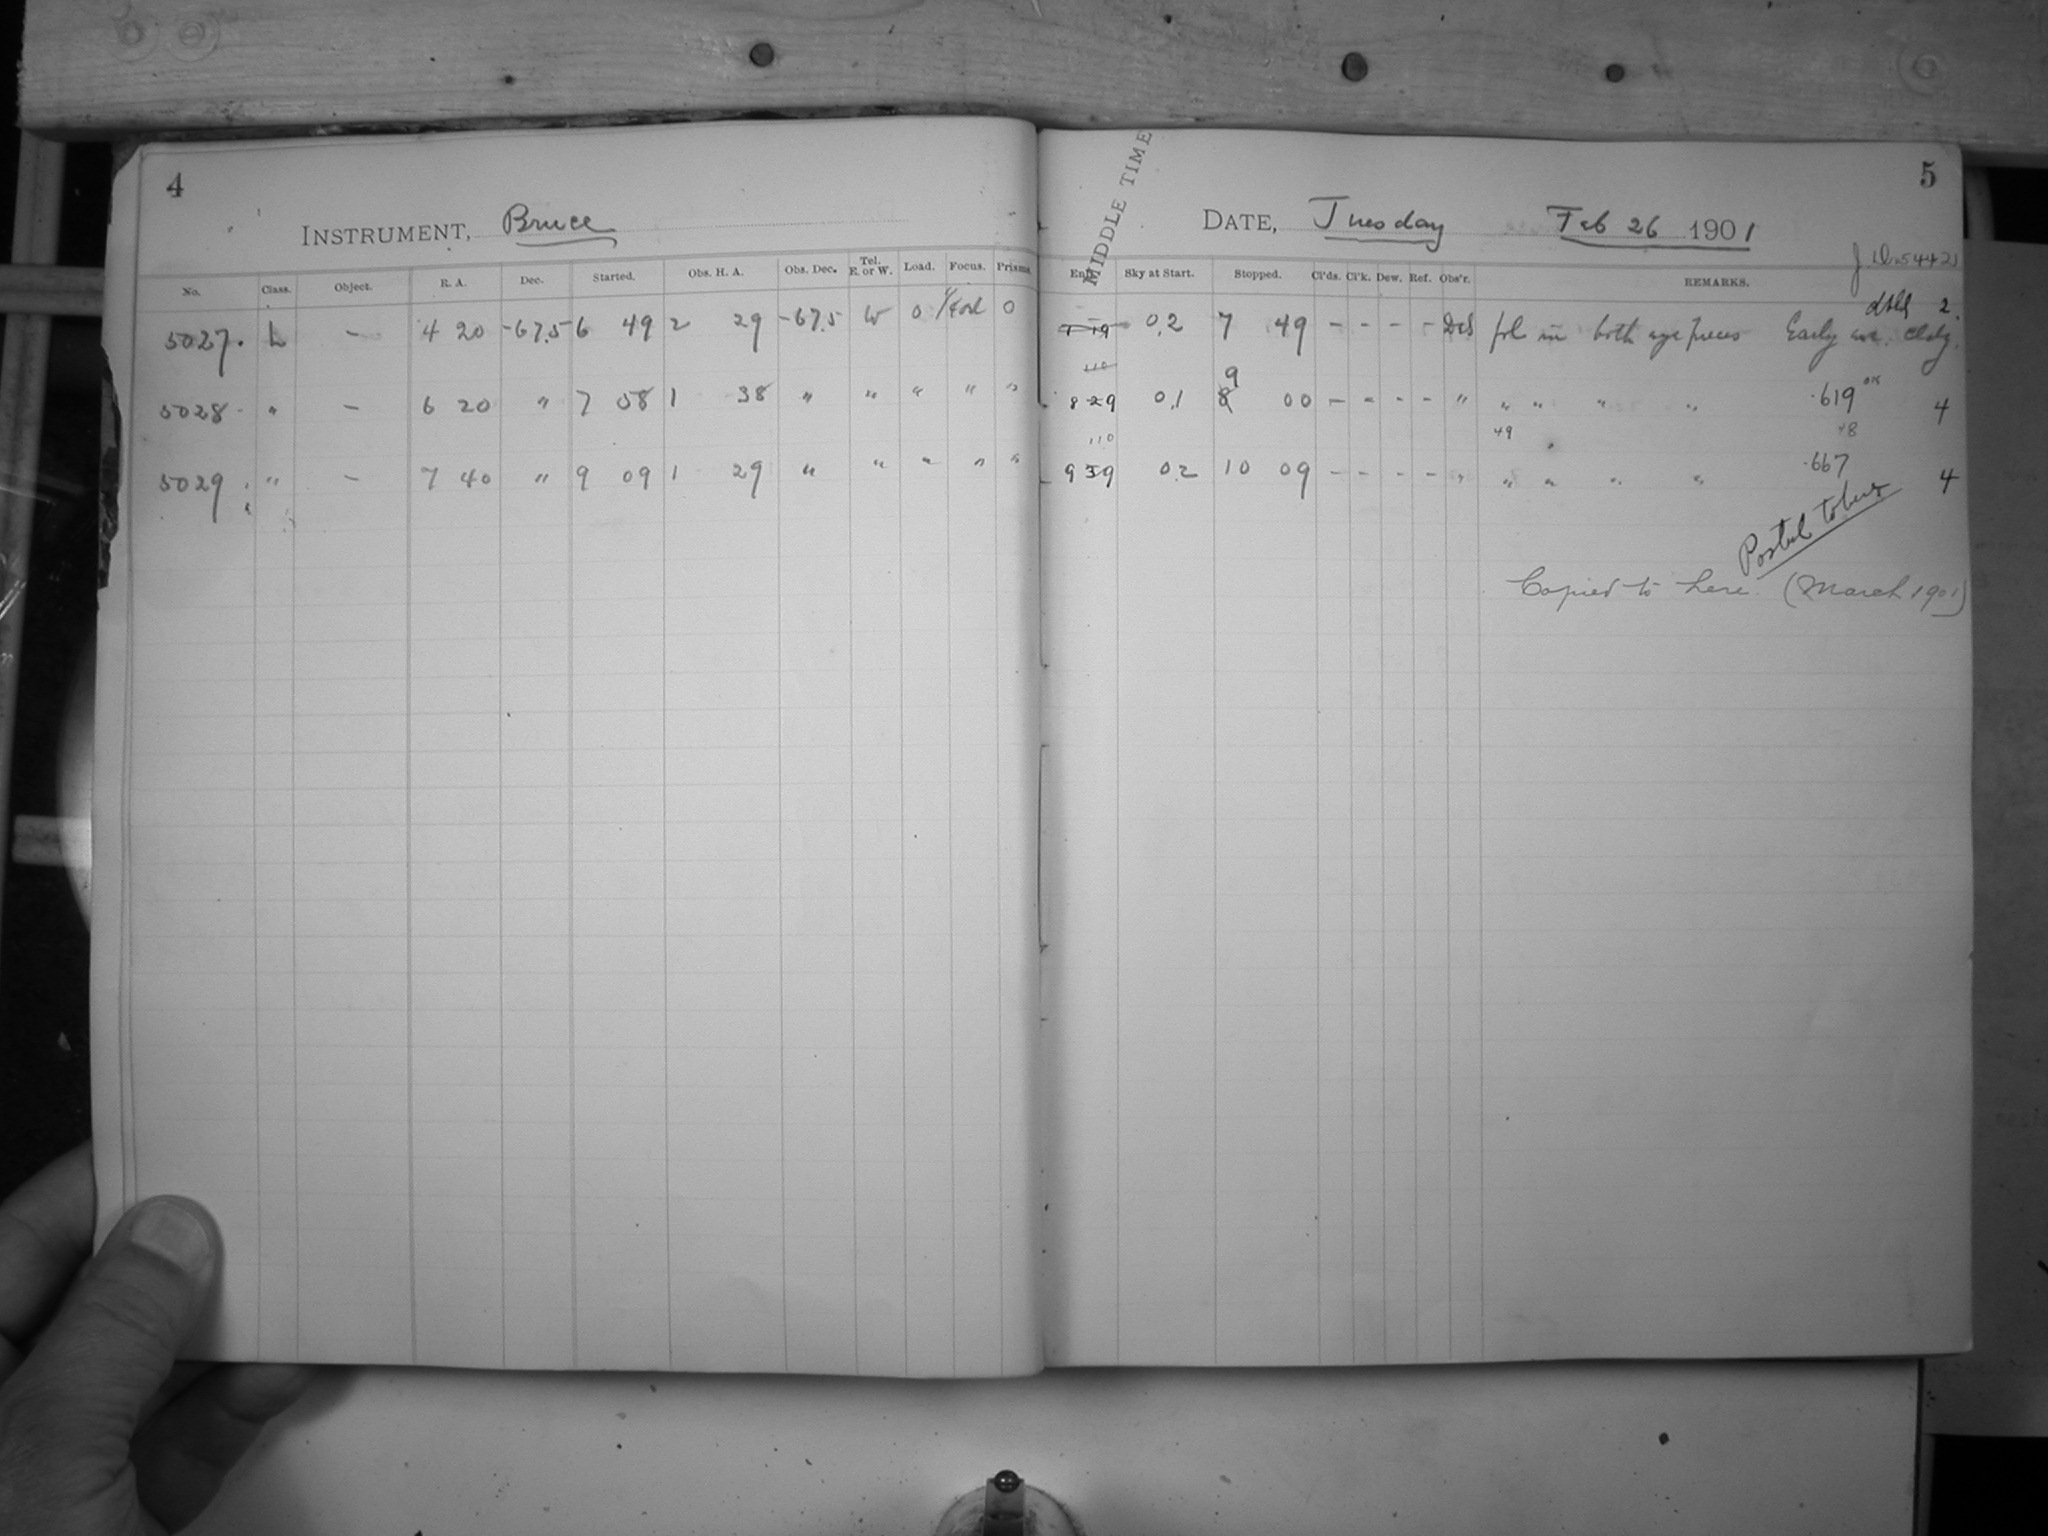 4
INSTRUMENT, Bruce
No. Class. Object. R. A. Dec. Started. Obs. H. A. Obs. Dec. Tel. E. or W. Load. Focus. Prisms
5027. L – 4 20 -67.5 6 49 2 29 -67.5 W 0 0
5028 " – 6 20 " 7 58 1 38 " " " " "
5029 " – 7 40 " 9 09 1 29 " " " " "
MIDDLE TIME
5
DATE, Tuesday Feb 26 1901
Sky at Start. Stopped. Cl'ds. Cl'k. Dew. Ref. Obs'r. REMARKS.
2.
7 19 0.2 7 49 – – – – fol in both eye pieces Early eve. cldy.
110
9
8 29 0.1 8 00 – – – – " " " " " .619 4
110 49 48
9 39 0.2 10 09 – – – – " " " " " .667 4
Postal tobuy
Copied to here. (March 1901)